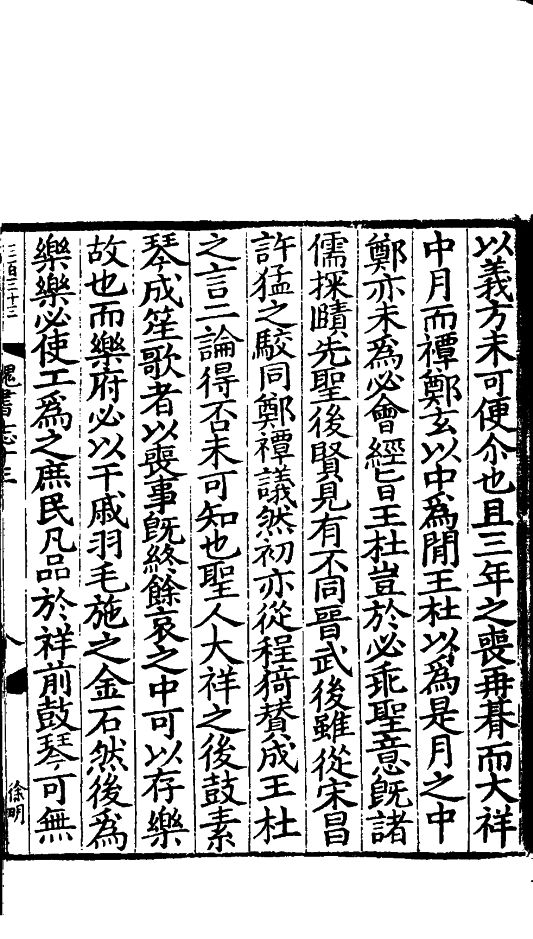 以義方未可便尒也且三年之喪再朞而大祥
中月而禫鄭玄以中爲閒王杜以爲是月之中
鄭亦未爲必會經旨王杜豈於必乖聖意旣諸
儒探賾先聖後賢見有不同晉武後雖從宋昌
許猛之駮同鄭禫議然初亦從程猗贊成王杜
之言二論得否未可知也聖人大祥之後鼓素
琴成笙歌者以喪事旣終餘哀之中可以存樂
故也而樂府必以干戚羽毛施之金石然後爲
樂樂必使工爲之庶民凡品於祥前鼓琴可無
三百三十三
魏書志十三
八
徐明